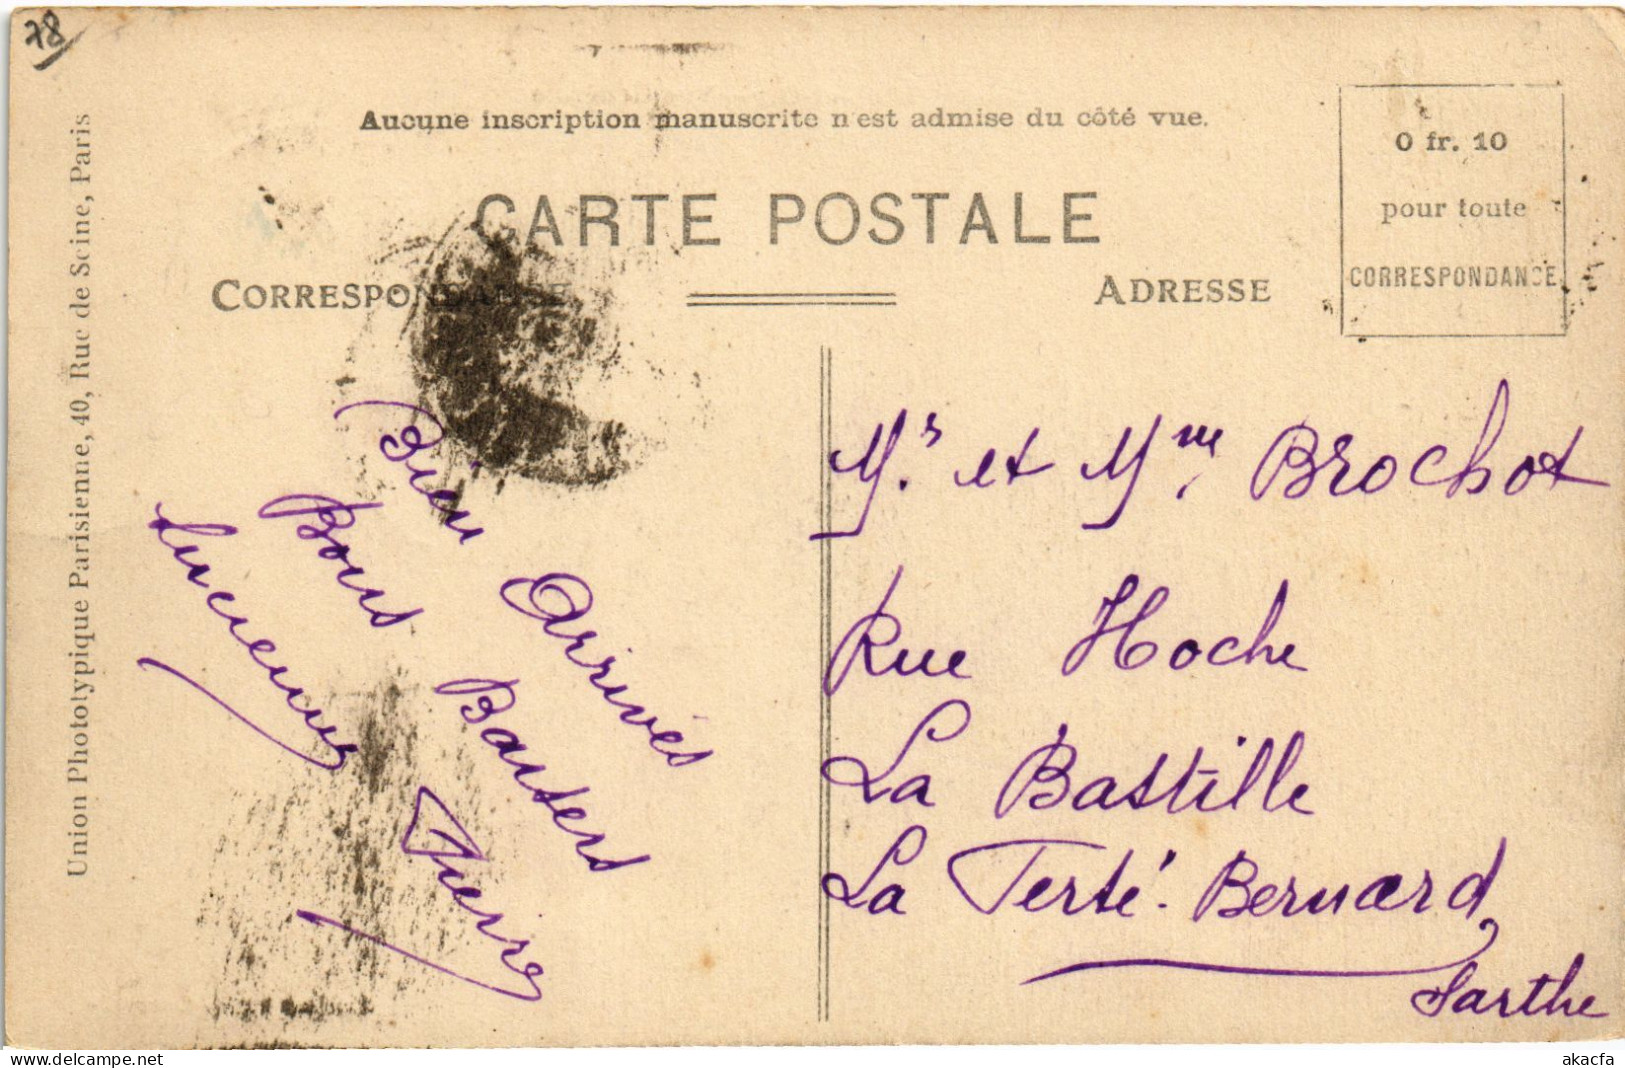 78
Aucune inscription manuscrite n'est admise du côté vue.
CARTE POSTALE
CORRESPONDANCE
ADRESSE
0 fr. 10
pour toute
CORRESPONDANCE
Union Phototypique Parisienne, 40, Rue de Seine, Paris
Bien Arrivés
Bons Baisers
Lucienne
Pierre
Mr. et Mme, Brochot
Rue Hoche
La Bastille
La Ferté-Bernard
Sarthe
www.delcampe.net
akacfa